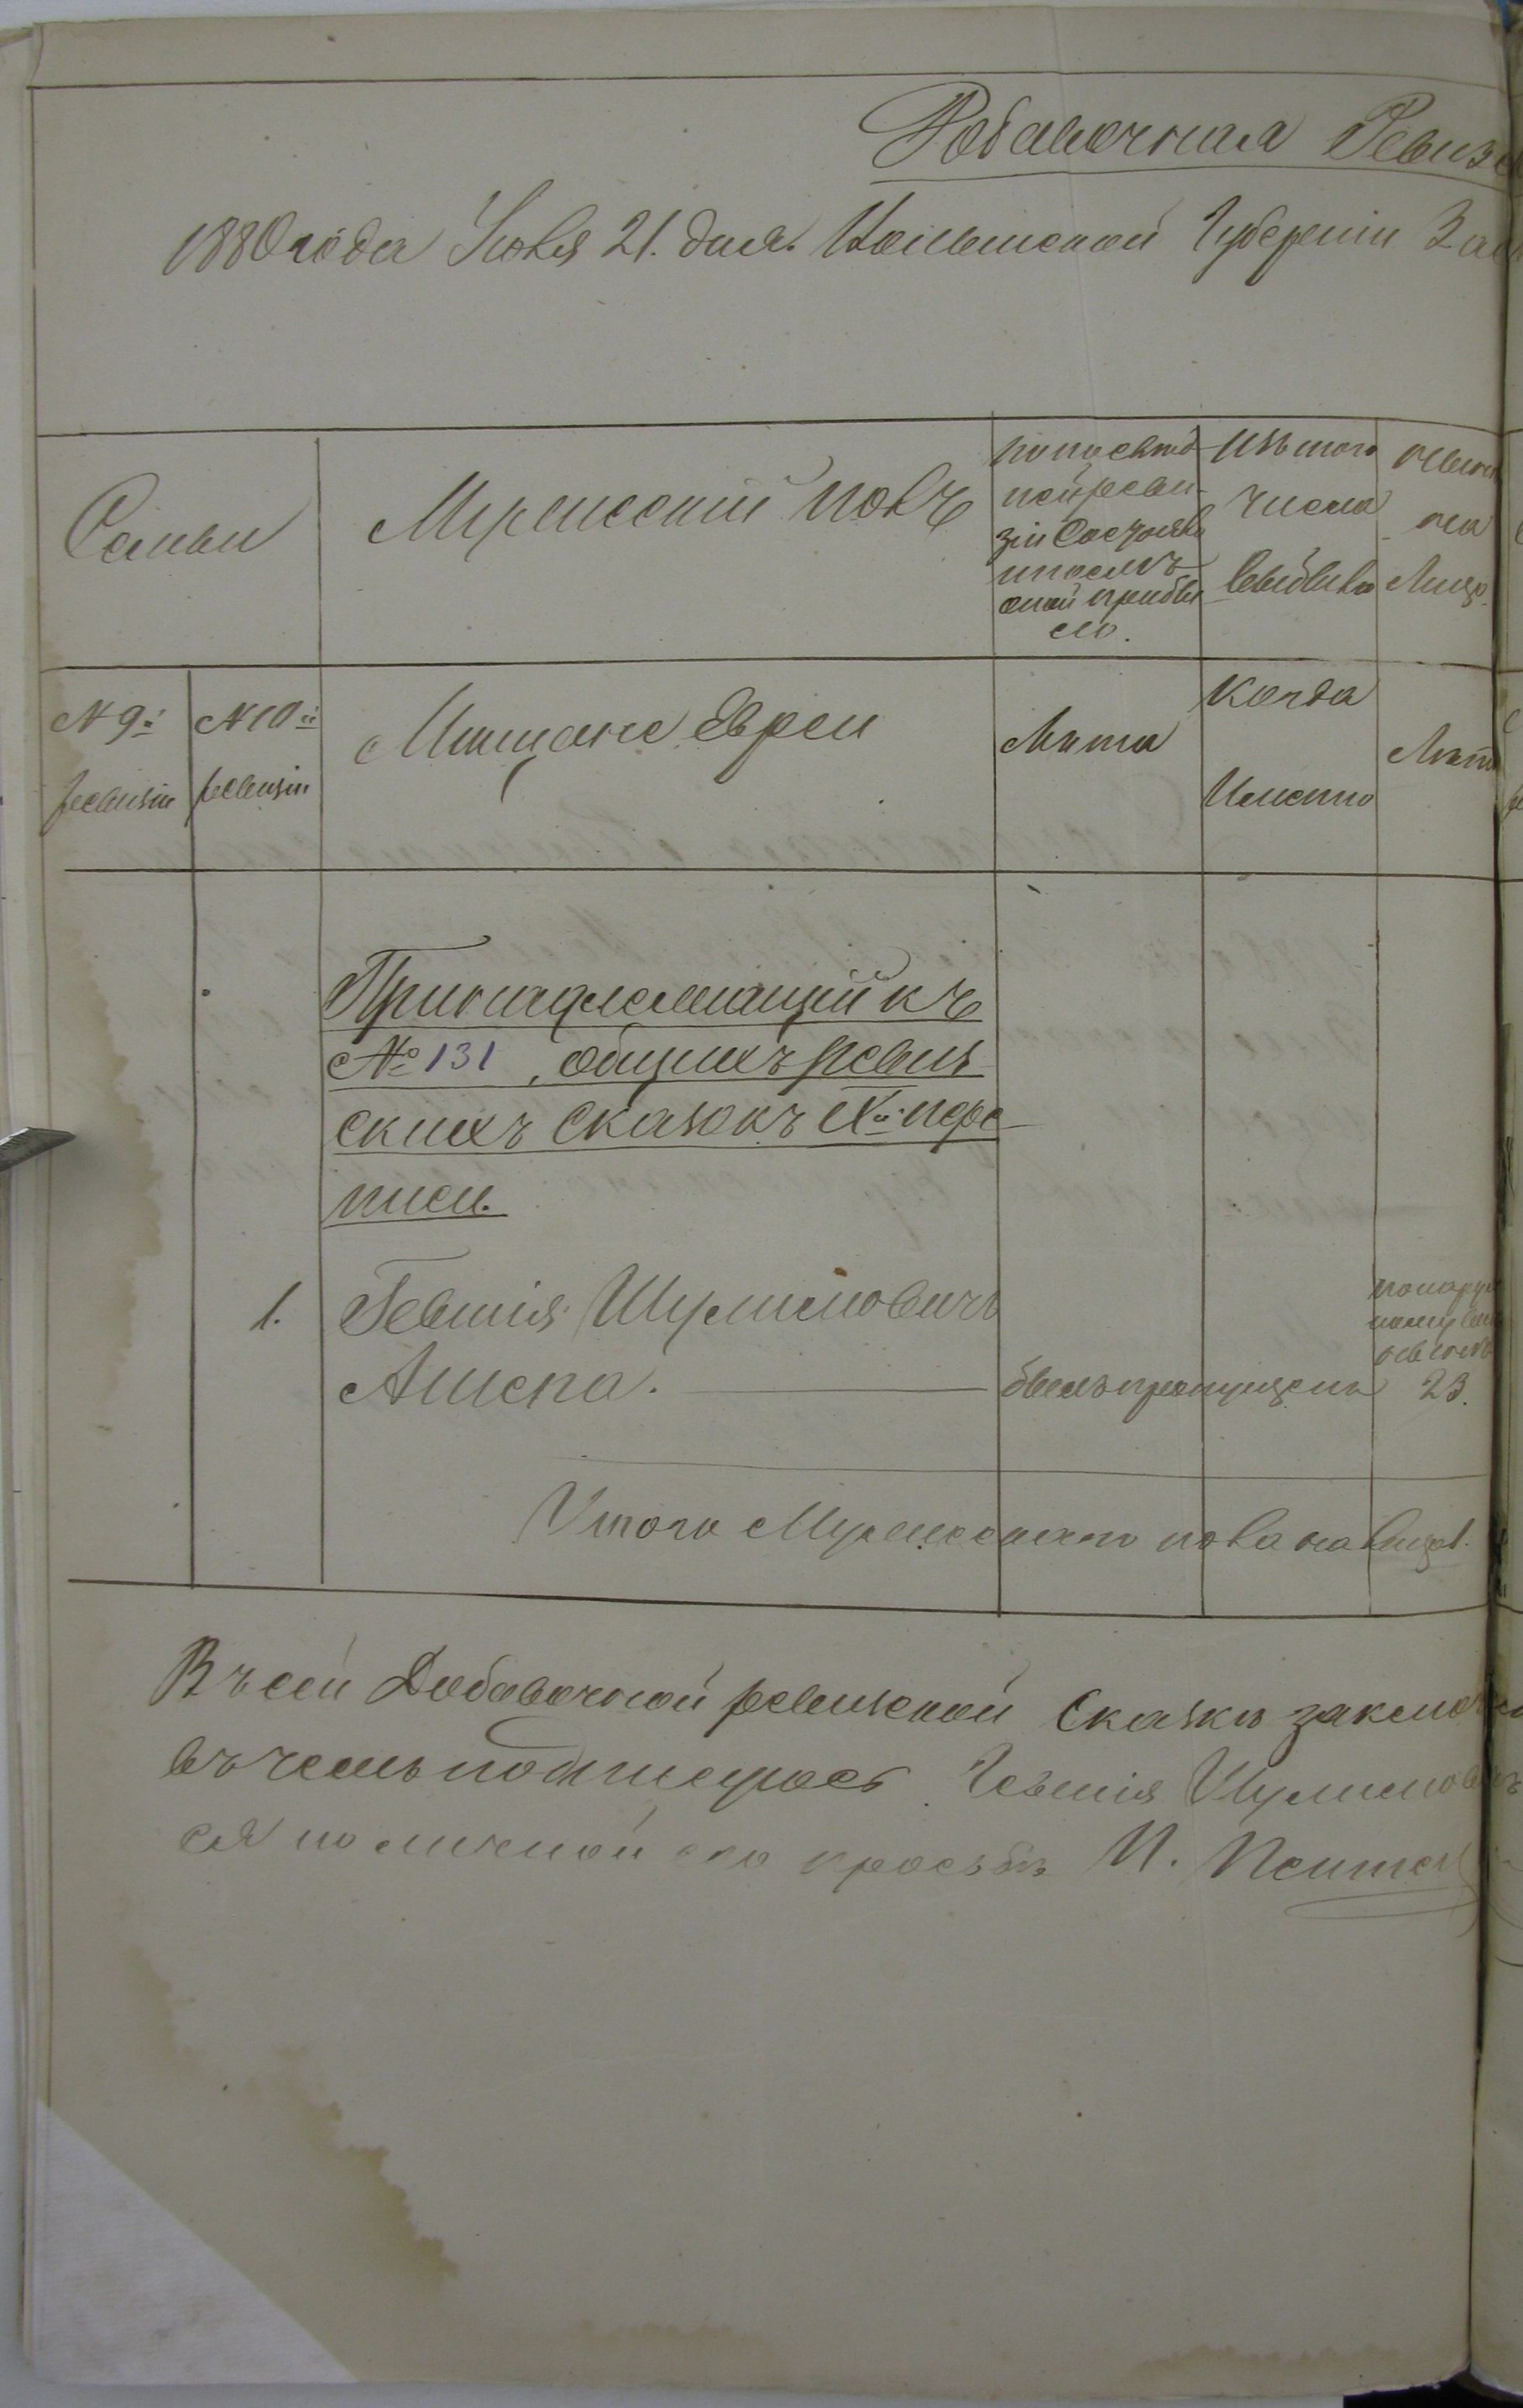 Добавочная Ревиз
1880 года Июля 21. дня. Ковенской Губернiи
Семьи
Мужескiй полъ
по послѣд
ней реви
зiи состояло
и послѣ
оной прибы
ло.
Изъ того
числа
выбыло
на
Лицо
N 9й
ревизiи
N 10й
ревизiи
Мѣщане Евреи
Лѣта
Когда
Именно
Лѣта
Принадлежащiй къ
№ 131, общихъ ревиз
скихъ сказокъ Xй пере
писи.
1. Гевшiя Шулимовичъ
Ашепа. былъ пропущенъ 23.
по наруж
ному виду
Итого Мужескаго пола на лицо 1.
Въ сей Добавочной ревизской Сказкѣ заключ
въ чемъ подписуюсь Гевшiя Шулимов
ся по личной его просьбѣ И.